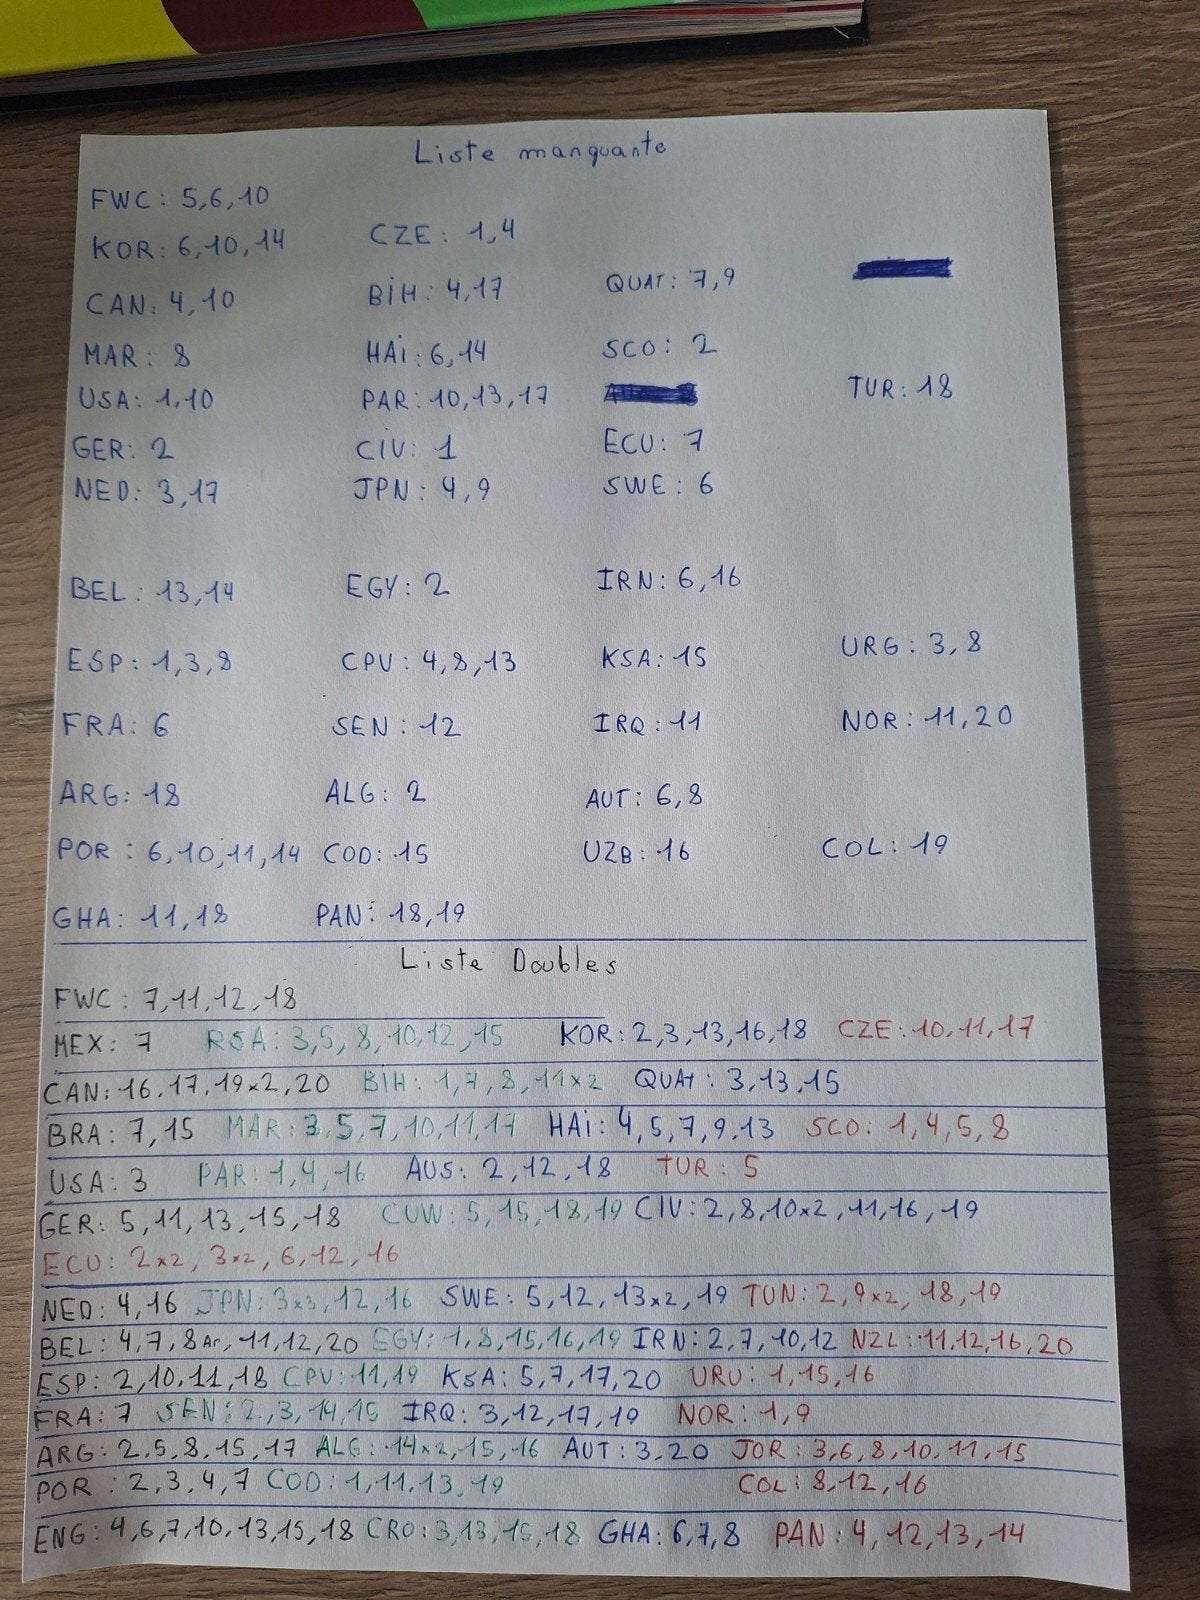 Liste manquante
FWC: 5,6,10
KOR: 6,10,14 CZE: 1,4
CAN: 4,10 BiH: 4,17 QUAT: 7,9
MAR: 8 HAi: 6,14 SCO: 2
USA: 1,10 PAR: 10,13,17 TUR: 18
GER: 2 CiV: 1 ECU: 7
NED: 3,17 JPN: 4,9 SWE: 6
BEL: 13,14 EGY: 2 IRN: 6,16
ESP: 1,3,8 CPV: 4,8,13 KSA: 15 URG: 3,8
FRA: 6 SEN: 12 IRQ: 11 NOR: 11,20
ARG: 18 ALG: 2 AUT: 6,8
POR: 6,10,11,14 COD: 15 UZB: 16 COL: 19
GHA: 11,18 PAN: 18,19
Liste Doubles
FWC: 7,11,12,18
MEX: 7 RSA: 3,5,8,10,12,15 KOR: 2,3,13,16,18 CZE: 10,11,17
CAN: 16,17,19x2,20 BiH: 1,7,8,11x2 QUAT: 3,13,15
BRA: 7,15 MAR: 3,5,7,10,11,17 HAi: 4,5,7,9,13 SCO: 1,4,5,8
USA: 3 PAR: 1,4,16 AUS: 2,12,18 TUR: 5
GER: 5,11,13,15,18 CUW: 5,15,18,19 CIV: 2,8,10x2,11,16,19
ECU: 2x2, 3x2, 6,12,16
NED: 4,16 JPN: 3x3,12,16 SWE: 5,12,13x2,19 TUN: 2,9x2,18,19
BEL: 4,7,8,11,12,20 EGY: 1,8,15,16,19 IRN: 2,7,10,12 NZL: 11,12,16,20
ESP: 2,10,11,18 CPV: 11,19 KSA: 5,7,17,20 URU: 1,15,16
FRA: 7 SEN: 2,3,14,15 IRQ: 3,12,17,19 NOR: 1,9
ARG: 2,5,8,15,17 ALG: 14x2,15,16 AUT: 3,20 JOR: 3,6,8,10,11,15
POR: 2,3,4,7 COD: 1,11,13,19 COL: 8,12,16
ENG: 4,6,7,10,13,15,18 CRO: 3,13,15,18 GHA: 6,7,8 PAN: 4,12,13,14